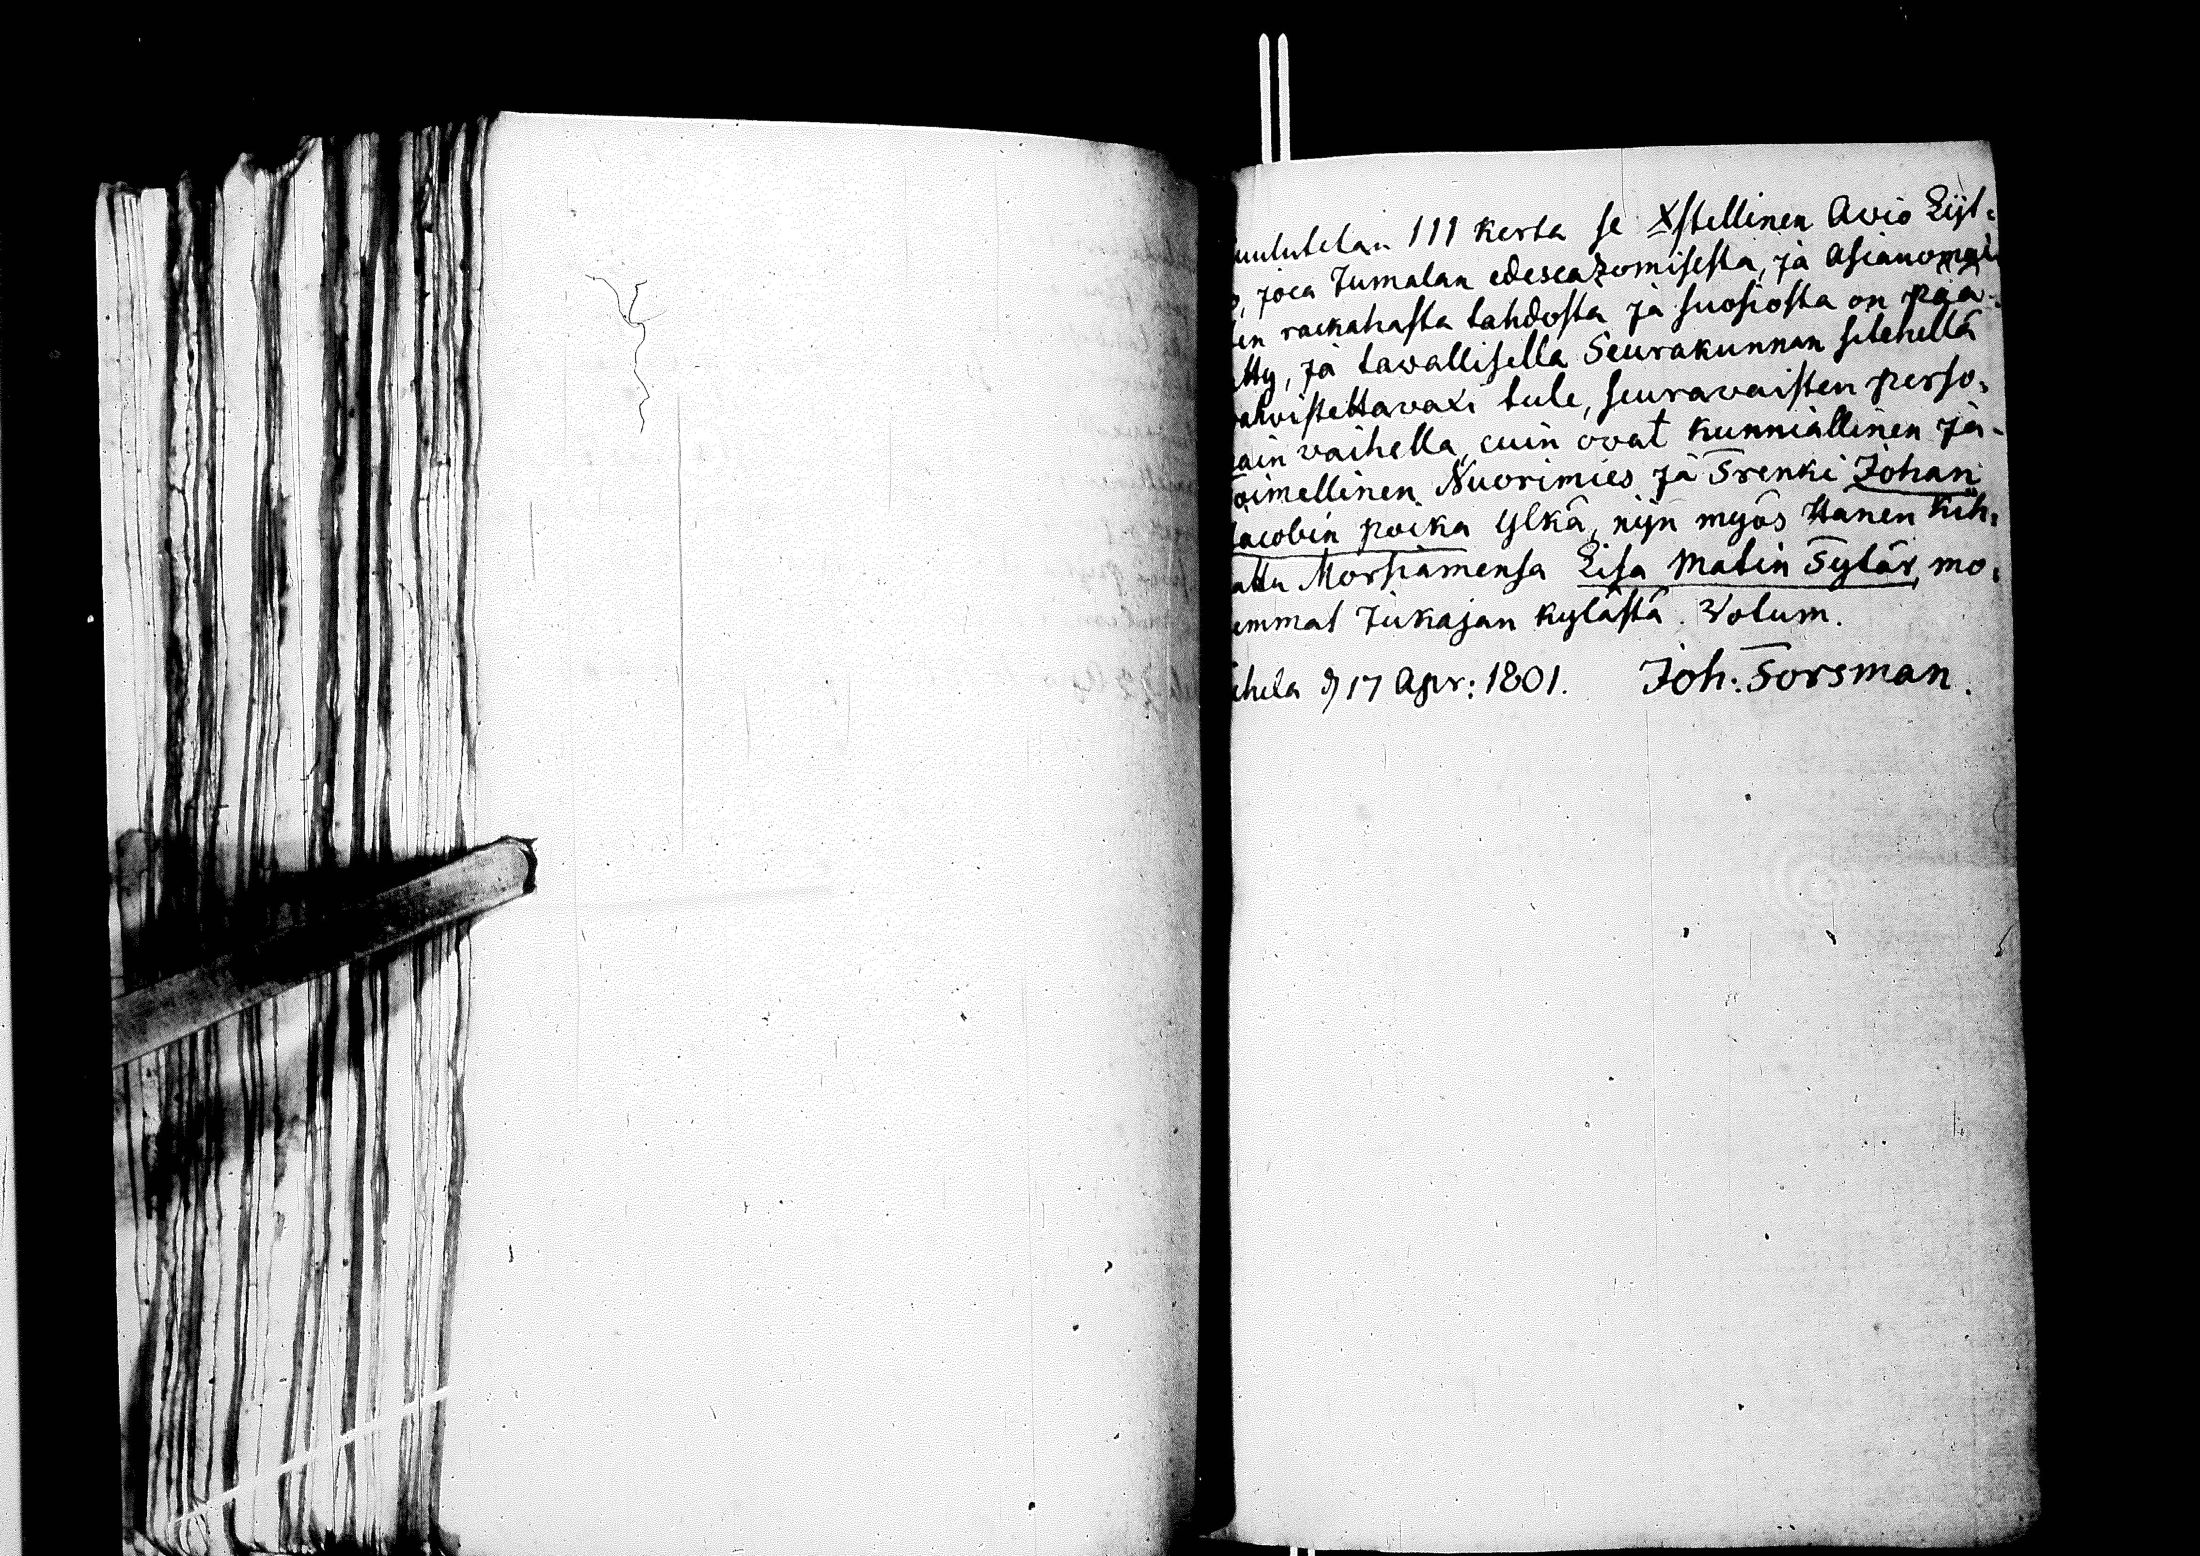 uulutetan III kerta se Xstellinen Avio Lijt=
joca Jumalan edescazomisesta, ja Asianomat=
en rackahasta tahdosta ja suosiosta on pää=
tty, ja tavallisella Seurakunnan sitehellä
ahvistettavaxi tule, seuravaisten perso=
ain vaihella, cuin ovat kunniallinen ja
oimellinen Nuorimies ja Trenki Johan
Jacobin poika Ylkä, nijn myös Hänen Kih=
attu Morsiamensa Lisa Matin Tytär, mo=
emmat Jukajan kylästä. Votum.
d 17 Apr: 1801. Joh: Forsman.